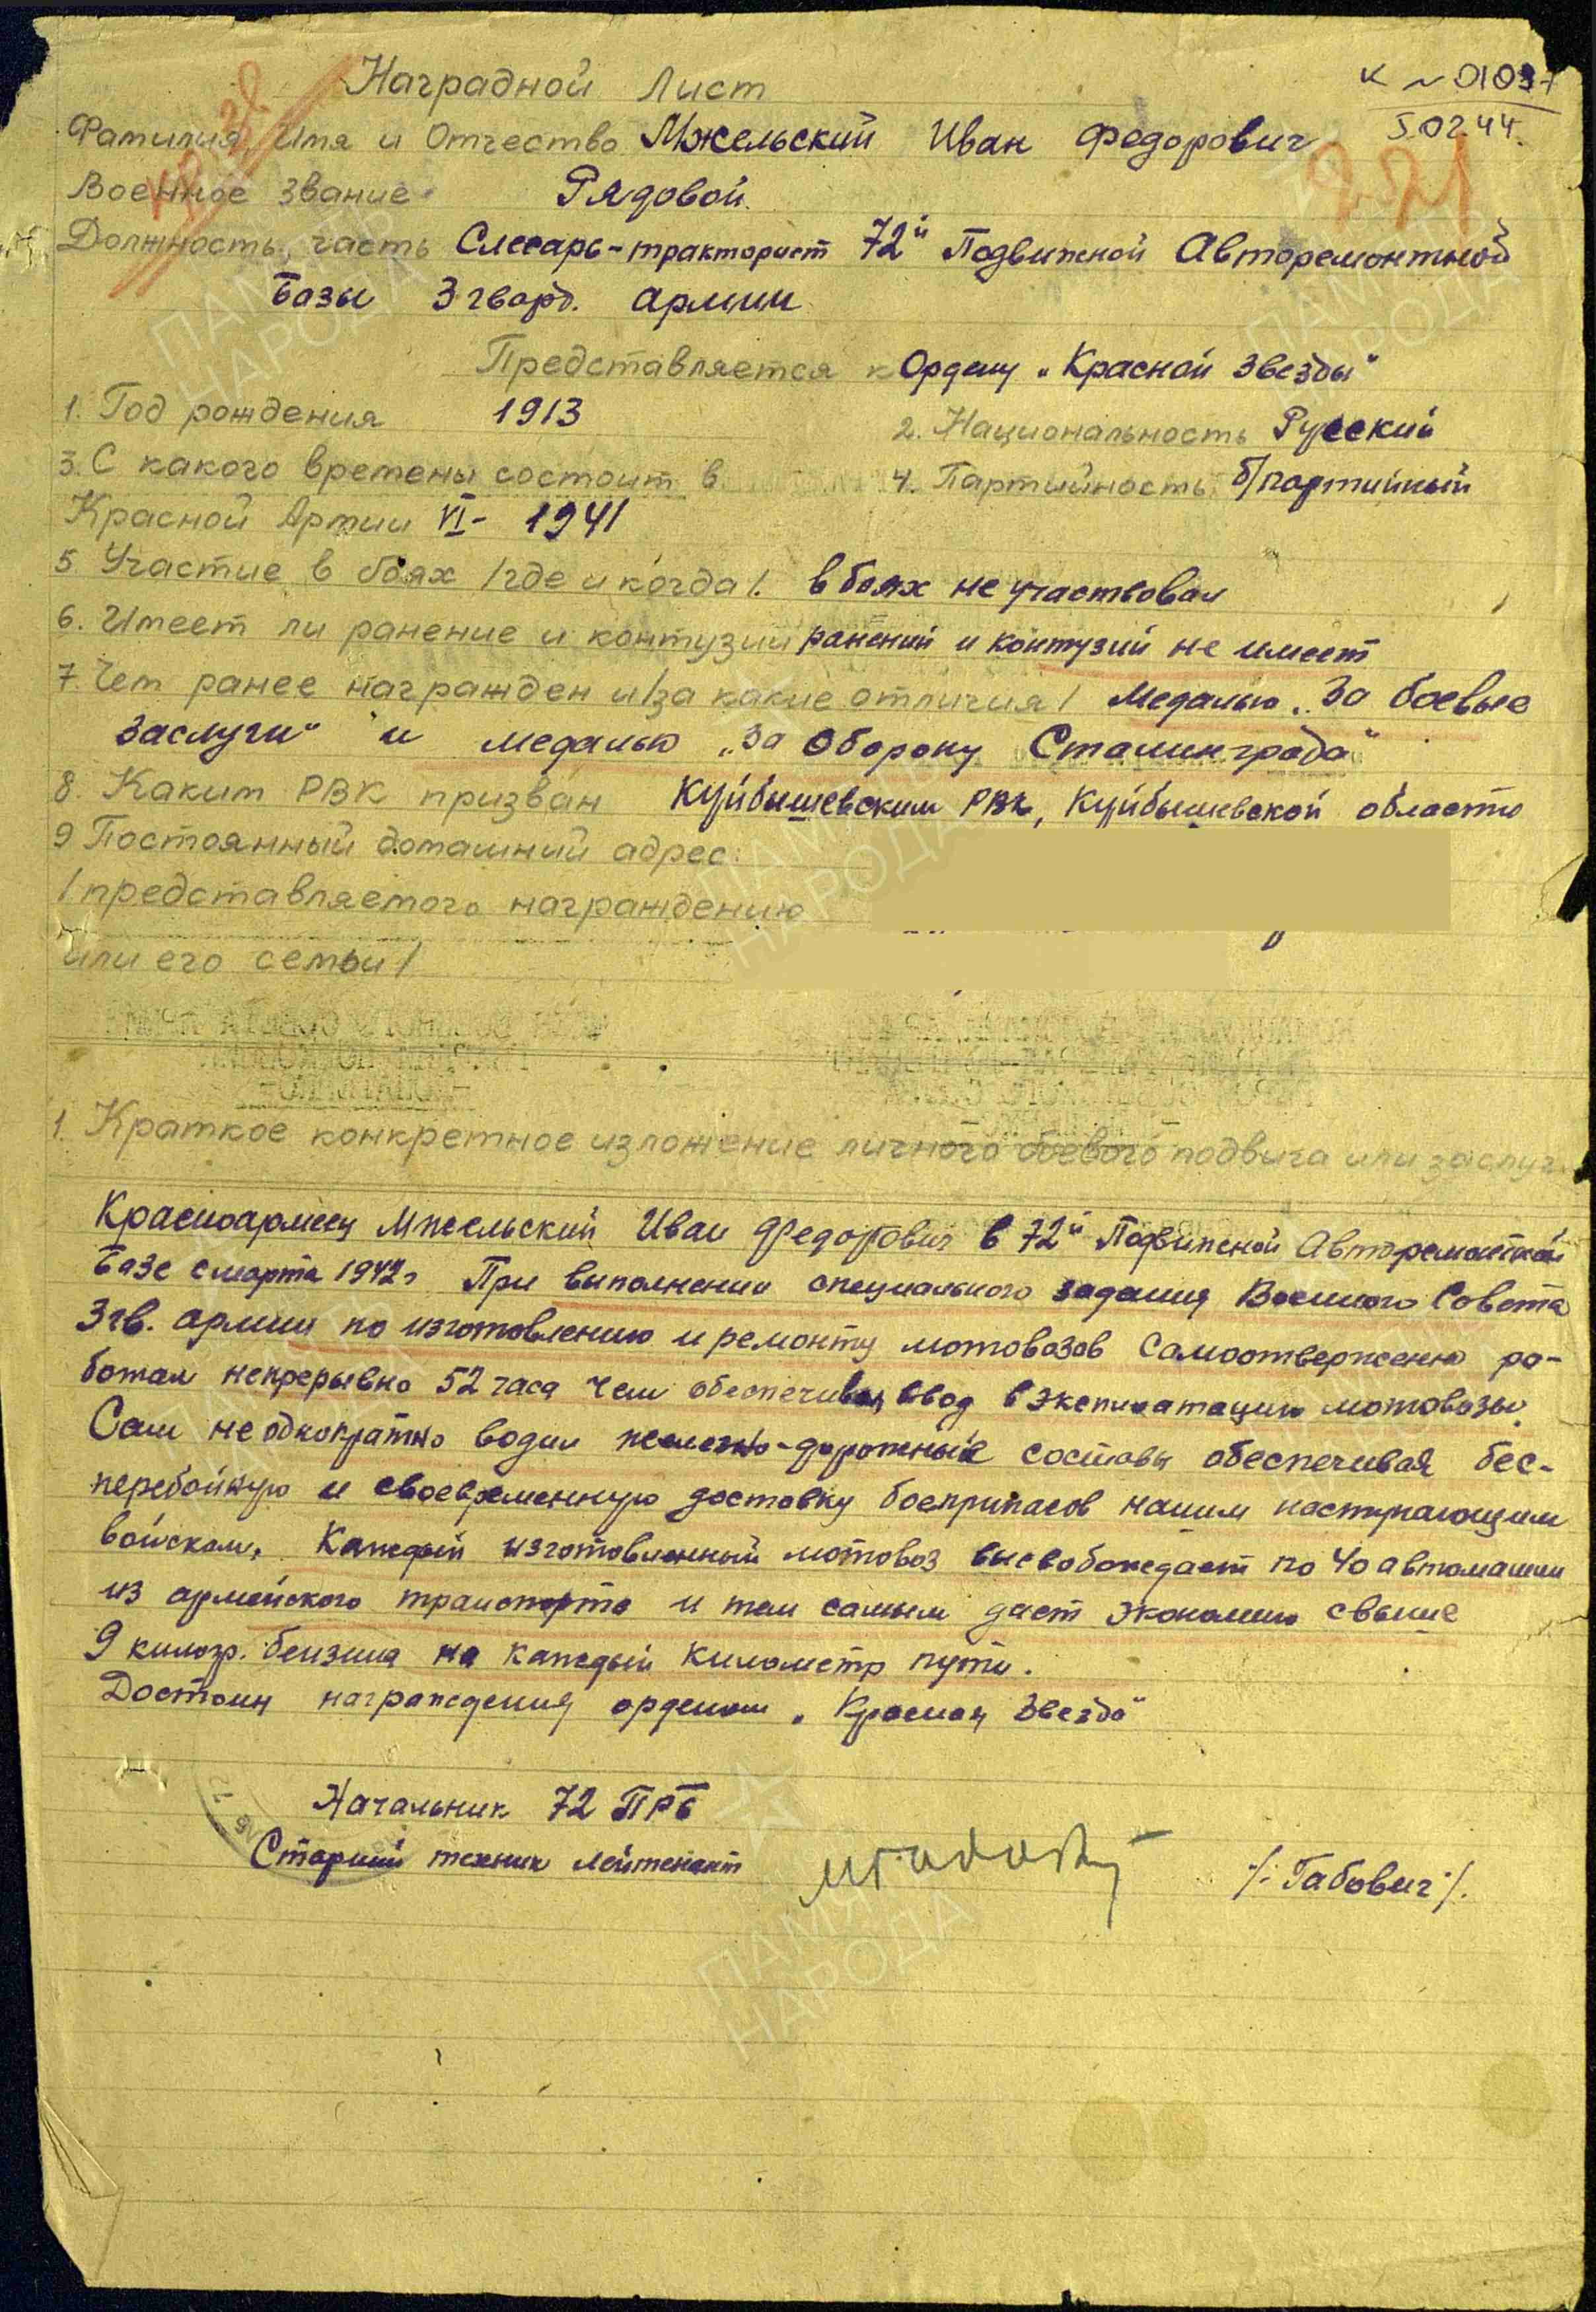 К № 01037
5.02.44.
Наградной Лист
221
Фамилия, Имя и Отчество Мжельский Иван Федорович
Военное звание Рядовой
Должность, часть Слесарь-тракторист 72й Подвижной Авторемонтной
Базы 3 гвард. армии
Представляется к Ордену „Красной Звезды“
1. Год рождения 1913
2. Национальность Русский
3. С какого времены состоит в
4. Партийность б/партийный
Красной Армии VI - 1941
5. Участие в боях /где и когда/. в боях не участвовал
6. Имеет ли ранение и контузии ранений и контузий не имеет
7. Чем ранее награжден и/за какие отличия/ Медалью „За боевые
заслуги“ и медалью „За Оборону Сталинграда“
8. Каким РВК призван Куйбышевским РВК, Куйбышевской области
9 Постоянный домашний адрес:
/представляемого награждению
или его семьи/
1. Краткое конкретное изложение личного боевого подвига или заслуг
Красноармеец Мжельский Иван Федорович в 72й Подвижной Авторемонтной
Базе с марта 1942г. При выполнении специального задания Военного Совета
3 гв. армии по изготовлению и ремонту мотовозов самоотверженно ра-
ботал непрерывно 52 часа чем обеспечивал ввод в эксплоатацию мотовозы.
Сам неоднократно водил железно-дорожные составы обеспечивая бес-
перебойную и своевременную доставку боеприпасов нашим наступающим
войскам. Каждый изготовленный мотовоз высвобождает по 40 автомашин
из армейского транспорта и тем самым дает экономию свыше
9 килогр. бензина на каждый километр пути.
Достоин награждения орденом „Красная Звезда“
Начальник 72 ПРБ
Старший техник лейтенант
/: Габович :/.
ПАМЯТЬ
НАРОДА